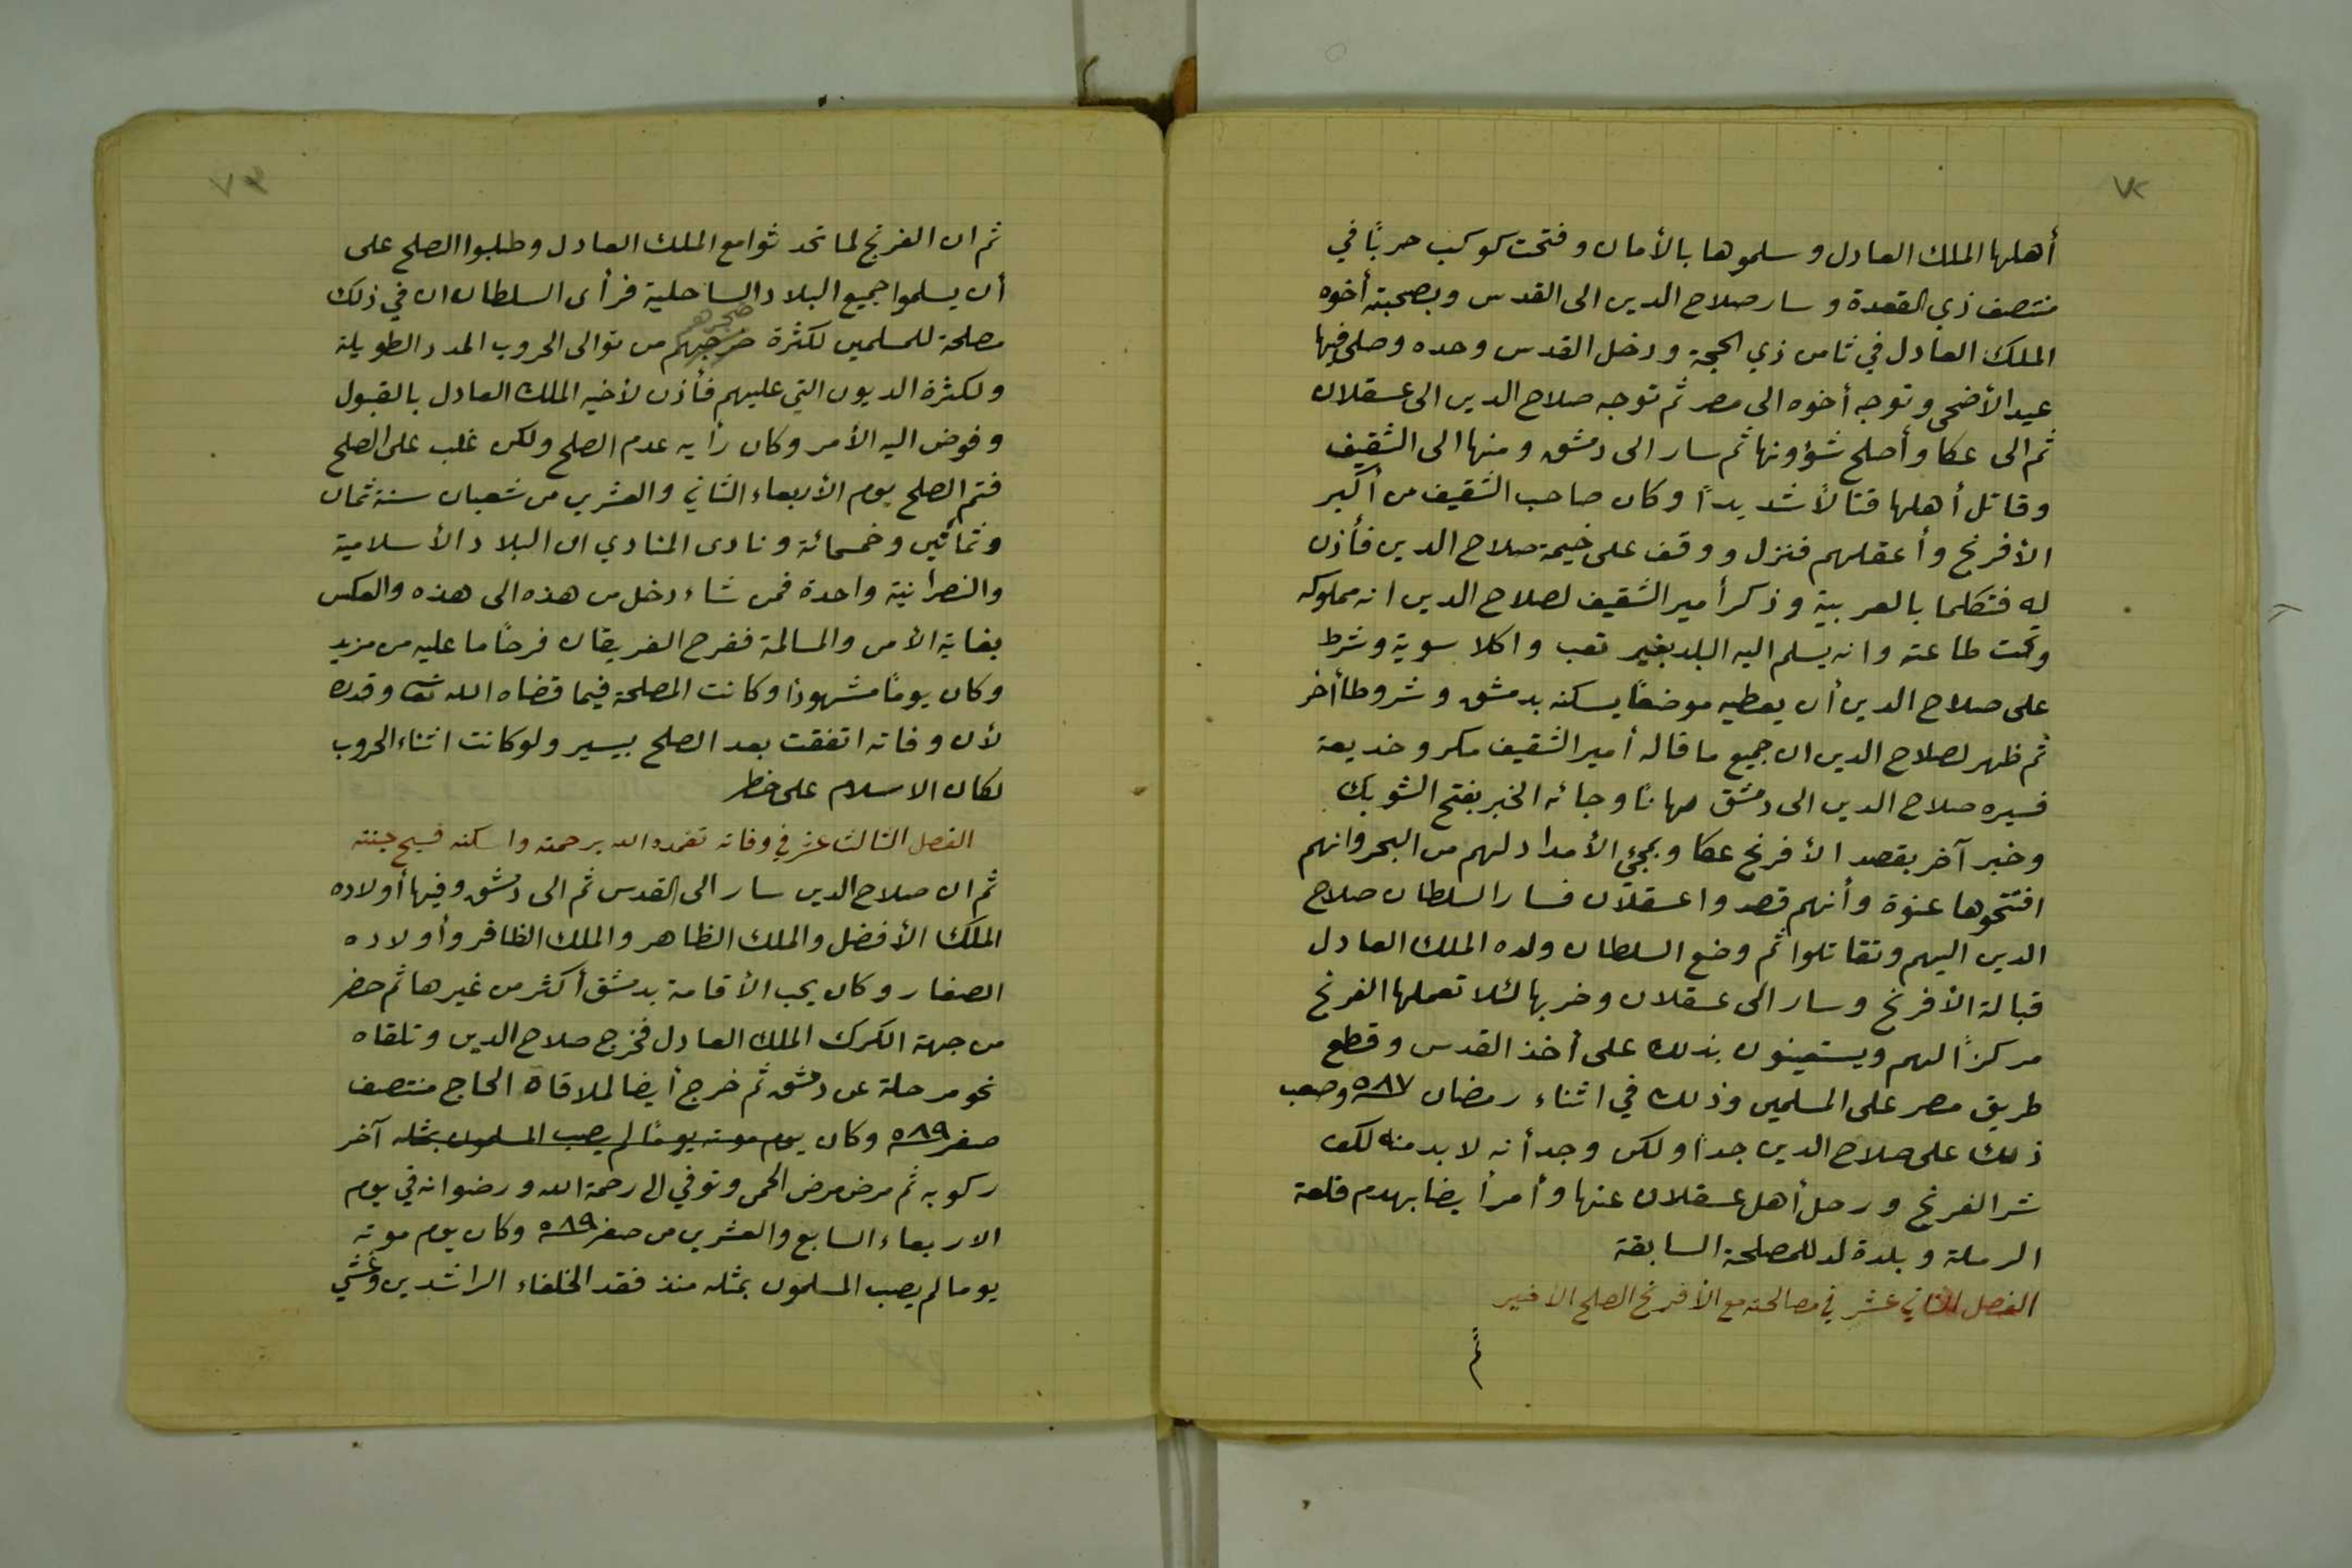 ٧٢
أهلها الملك العادل وسلموها بالأمان وفتحت كوكب حربًا في
منتصف ذي القعدة وسار صلاح الدين الى القدس وبصحبته أخوه
الملك العادل في ثامن ذي الحجة ودخل القدس وحده وصلى فيها
عيد الأضحى وتوجه أخوه الى مصر ثم توجه صلاح الدين الى عسقلان
ثم الى عكا وأصلح شؤونها ثم سار الى دمشق ومنها الى الشقيف
وقاتل أهلها قتالاً شديداً وكان صاحب الشقيف من أكبر
الأفرنج وأعقلهم فنزل ووقف على خيمة صلاح الدين فأذن
له فتكلما بالعربية وذكر أمير الشقيف لصلاح الدين انه مملوكه
وتحت طاعته وانه يسلم اليه البلد بغير تعب واكلا سوية وشرط
على صلاح الدين أن يعطيه موضعًا يسكنه بدمشق وشروطا أخر
ثم ظهر لصلاح الدين ان جميع ما قاله أمير الشقيف مكر وخديعة
فسيره صلاح الدين الى دمشق مهانًا وجائه الخبر بفتح الشوبك
وخبر آخر بقصد الأفرنج عكا وبمجئ الأمداد لهم من البحر وانهم
افتتحوها عنوة وأنهم قصدوا عسقلان فسار السلطان صلاح
الدين اليهم وتقاتلوا ثم وضع السلطان ولده الملك العادل
قبالة الأفرنج وسار الى عسقلان وخربها لئلا تعملها الفرنج
مركزاً لهم ويستعينون بذلك على أخذ القدس وقطع
طريق مصر على المسلمين وذلك في اثناء رمضان ٥٨٧ وصعب
ذلك على صلاح الدين جداً ولكن وجد أنه لا بد منه لكف
شر الفرنج ورحل أهل عسقلان عنها وأمر أيضا بهدم قلعة
الرملة وبلدة لد للمصلحة السابقة
الفصل الثاني عشر في مصالحته مع الأفرنج الصلح الاخير
ثم
٧٣
ثم ان الفرنج لما تحدثوا مع الملك العادل وطلبوا الصلح على
أن يسلموا جميع البلاد الساحلية فرأى السلطان ان في ذلك
ضجرهم
مصلحة للمسلمين لكثرة من توالى الحروب المدد الطويلة
ولكثرة الديون التي عليهم فأذن لأخيه الملك العادل بالقبول
وفوض اليه الأمر وكان رأيه عدم الصلح ولكن غلب على الصلح
فتم الصلح يوم الأربعاء الثاني والعشرين من شعبان سنة ثمان
وثمانين وخمسمائة ونادى المنادي ان البلاد الأسلامية
والنصرانية واحدة فمن شاء دخل من هذه الى هذه والعكس
بغاية الأمن والمسالمة ففرح الفريقان فرحًا ما عليه من مزيد
وكان يومًا مشهودًا وكانت المصلحة فيما قضاه الله تعا وقدره
لأن وفاته اتفقت بعد الصلح بيسير ولو كانت اثناء الحروب
لكان الاسلام على خطر
الفصل الثالث عشر في وفاته تغمده الله برحمته واسكنه فسيح جنته
ثم ان صلاح الدين سار الى القدس ثم الى دمشق وفيها أولاده
الملك الأفضل والملك الظاهر والملك الظافر وأولاده
الصغار وكان يحب الأقامة بدمشق أكثر من غيرها ثم حضر
من جهة الكرك الملك العادل فخرج صلاح الدين وتلقاه
نحو مرحلة عن دمشق ثم خرج أيضا لملاقاة الحاج منتصف
صفر ٥٨٩ وكان يوم موته يومًا لم يصب المسلمون بمثله آخر
ركوبه ثم مرض مرض الحمى وتوفي الى رحمة الله ورضوانه في يوم
الاربعاء السابع والعشرين من صفر ٥٨٩ وكان يوم موته
يوما لم يصب المسلمون بمثله منذ فقد الخلفاء الراشدين وغشي